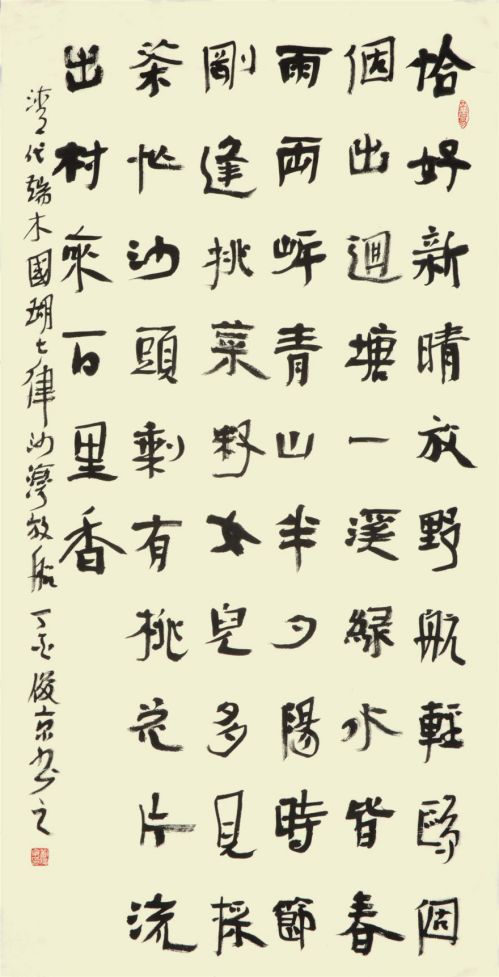 恰好新晴放野航輕鷗個
個出迴塘一溪綠水皆春
雨兩岸青山半夕陽時節
剛逢挑菜好女兒多見採
茶忙沙頭剩有桃花片流
出村來百里香
清代端木國瑚七律沙灣放船 丁亥俊京書之